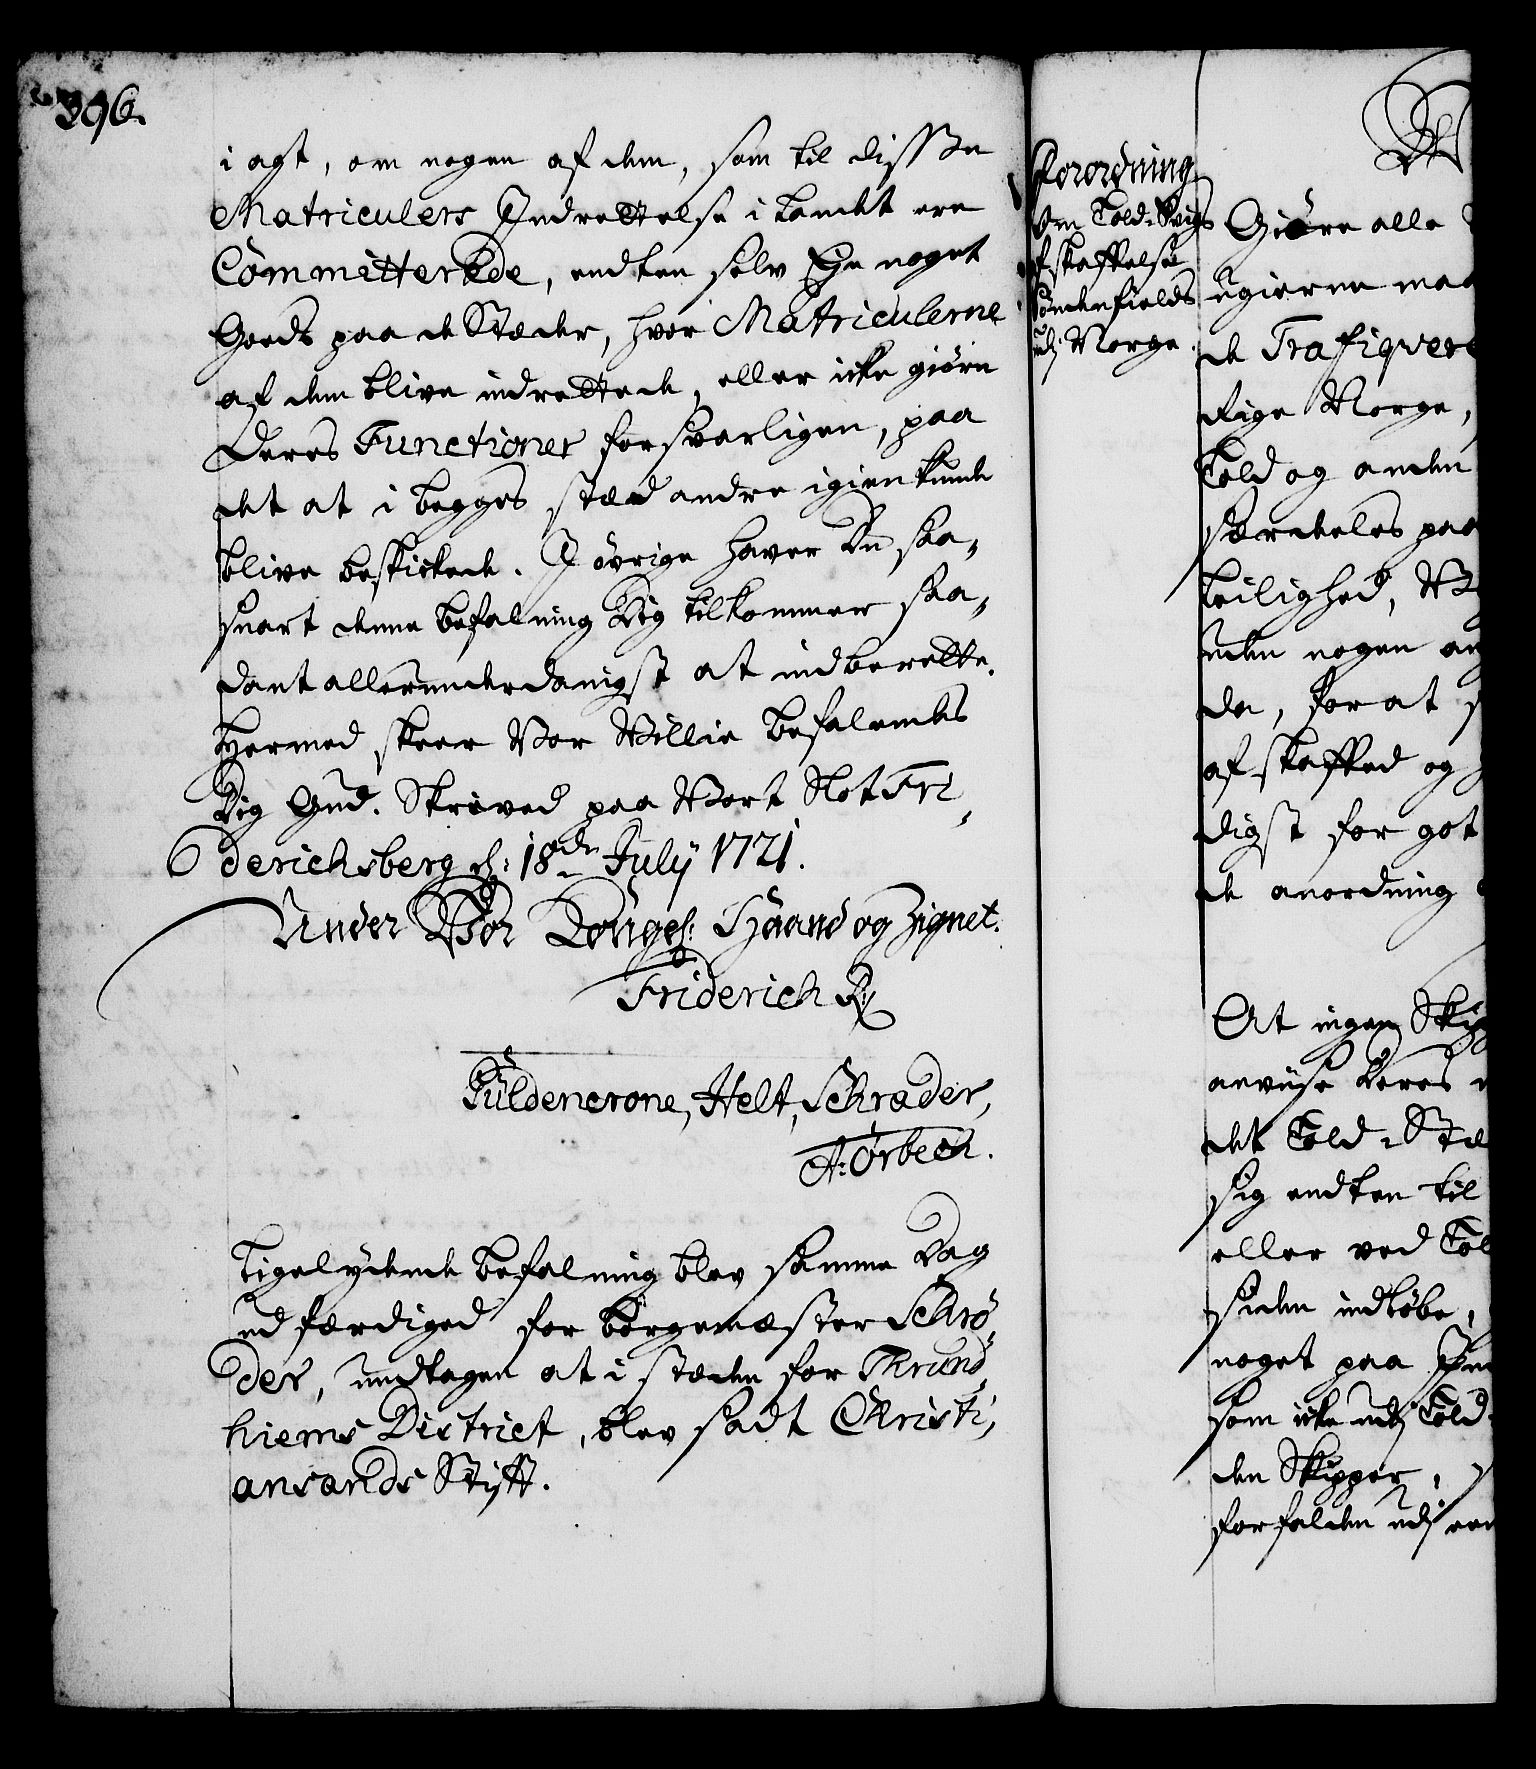 396.
i agt, om nogen af dem, som til disse
Matriculers Indrettelse i Landet ere
Committerede, endten selv Eje noget
Goeds paa de Stæder, hvor Matriculerne
af dem blive indrettede, eller icke giöre
Deres Functioner forsvarligen, paa
det at i begges stæd andre igien kunde
blive beskickede. I övrige haver Du saa,,
snart denne befalning Dig tilkommer saa,,
dant allerunderdanigst at indberette.
Hermed skeer Vor Villie befalendes
Dig Gud. Skreved paa Vort Slot Fri,,
derichsberg d: 18de July 1721.
Under Vor Kongel: Haand og Zignet.
Friderich R:
Güldencrone, Helt, Schrader,
A: Ørbech.
Ligelydende befalning blev samme Dag
udfærdiged for borgemæster Schrö,,
der, undtagen at i stæden for Thrund,,
hiems District, blev sadt Christi,,
ansands Stift.
Forordning
Om Told-Svigs
afskaffelse
Söndenfields
udj Norge.
Giöre alle
ugierne maa
de Trafiqvere
Rige Norge,
Told og anden
særdeles paa
Leilighed,
uden nogen
da, for at
afskaffed og
digst for got
de anordning
At ingen Skip
anviise Deres
det Told-Stæ
sig endten til
eller ved Tol
siden indløbe,
noget paa
som icke udj Told
den Skipper,
forfalden udj